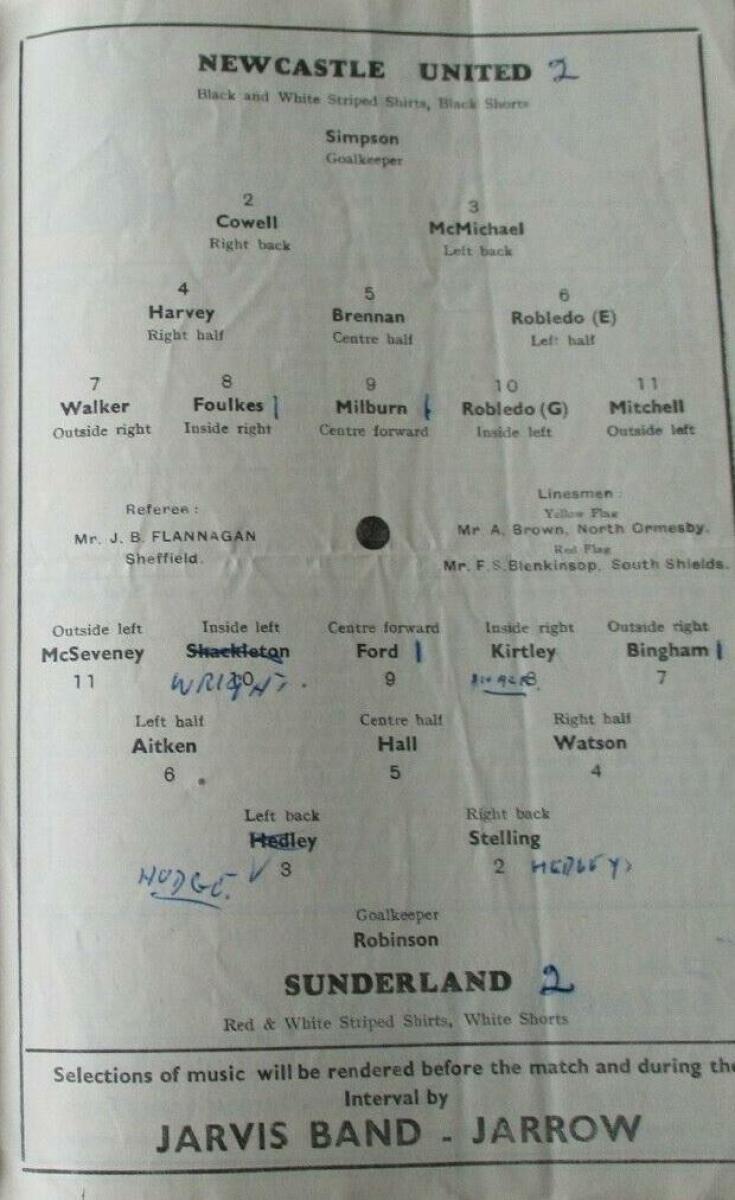 NEWCASTLE UNITED 2
Black and White Striped Shirts, Black Shorts
Simpson
Goalkeeper
2 3
Cowell McMichael
Right back Left back
4 5 6
Harvey Brennan Robledo (E)
Right half Centre half Left half
7 8 9 10 11
Walker Foulkes 1 Milburn 1 Robledo (G) Mitchell
Outside right Inside right Centre forward Inside left Outside left
Referee : Linesmen :
Yellow Flag
Mr. J. B. FLANNAGAN Mr A. Brown, North Ormesby.
Sheffield. Red Flag
Mr. F. S. Blenkinsop, South Shields.
Outside left Inside left Centre forward Inside right Outside right
McSeveney Shackleton Ford 1 Kirtley Bingham 1
11 WRIGHT. 10 9 8 7
Left half Centre half Right half
Aitken Hall Watson
6 5 4
Left back Right back
Hedley Stelling
HUDGE. 3 2 HEDLEY
Goalkeeper
Robinson
SUNDERLAND 2
Red & White Striped Shirts, White Shorts
Selections of music will be rendered before the match and during the
Interval by
JARVIS BAND - JARROW